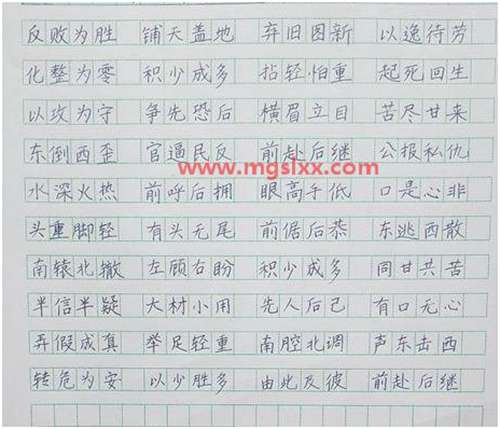 反败为胜 铺天盖地 弃旧图新 以逸待劳
化整为零 积少成多 拈轻怕重 起死回生
以攻为守 争先恐后 横眉立目 苦尽甘来
东倒西歪 官逼民反 前赴后继 公报私仇
www.mgslxx.com
水深火热 前呼后拥 眼高手低 口是心非
头重脚轻 有头无尾 前倨后恭 东逃西散
南辕北辙 左顾右盼 积少成多 同甘共苦
半信半疑 大材小用 先人后己 有口无心
弄假成真 举足轻重 南腔北调 声东击西
转危为安 以少胜多 由此及彼 前赴后继